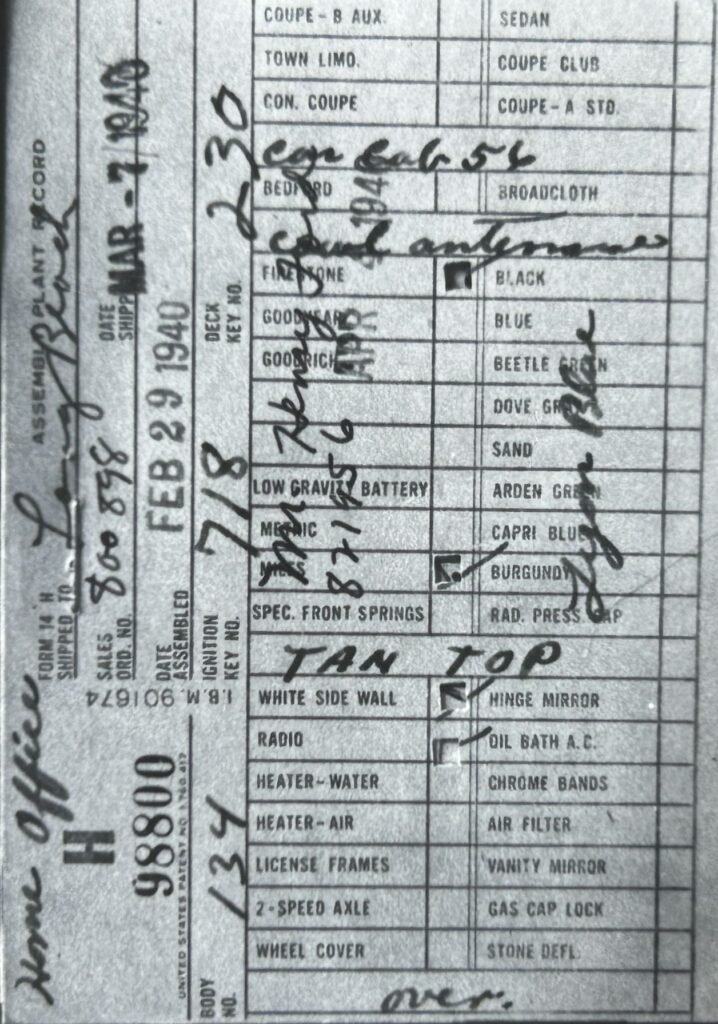 Home Office
FORM 14 H
ASSEMBLY PLANT RECORD
SHIPPED TO Long Beach
H
SALES ORD. NO. 800 898
DATE SHIPP MAR - 7 1940
98800
I.B.M. 901674
DATE ASSEMBLED FEB 29 1940
UNITED STATES PATENT NO. 1780.417
BODY NO. 134
IGNITION KEY NO. 718
DECK KEY NO. 230
COUPE - B AUX. SEDAN
TOWN LIMO. COUPE CLUB
CON. COUPE COUPE - A STD.
con cab 56
BEDFORD BROADCLOTH
cowl antennae
FIRESTONE BLACK
GOODYEAR BLUE
GOODRICH BEETLE GREEN
DOVE GRAY
SAND
LOW GRAVITY BATTERY ARDEN GREEN
METRIC CAPRI BLUE
MILES BURGUNDY
SPEC. FRONT SPRINGS RAD. PRESS. CAP
Mr. Henry Ford
821456
APR 4 1940
Lyon Blue
TAN TOP
WHITE SIDE WALL HINGE MIRROR
RADIO OIL BATH A.C.
HEATER - WATER CHROME BANDS
HEATER - AIR AIR FILTER
LICENSE FRAMES VANITY MIRROR
2 - SPEED AXLE GAS CAP LOCK
WHEEL COVER STONE DEFL.
over.